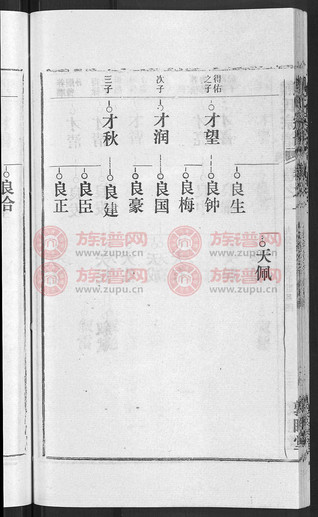 得佑之子
才望
次子
才润
三子
才秋
良生
良钟
良梅
良国
良豪
良建
良臣
良正
天佩
良合
族谱网
www.zupu.cn
族谱网
www.zupu.cn
族谱网
www.zupu.cn